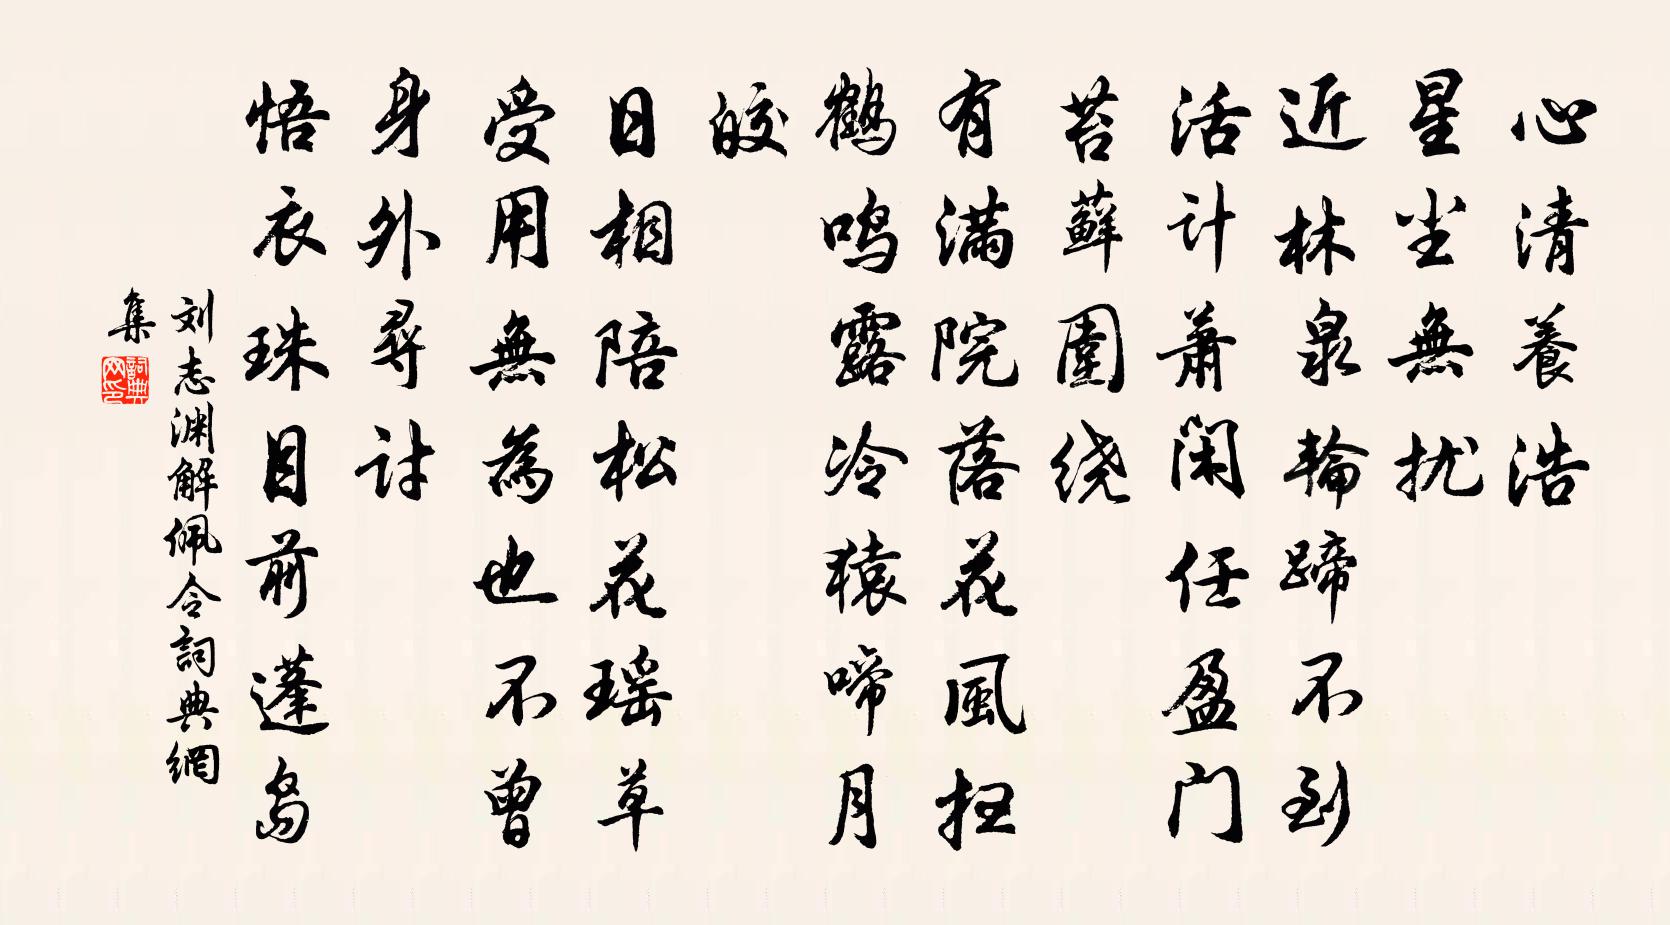 心清養浩
星尘無扰
近林泉輪蹄不到
活计萧闲任盈门
苔蘚圍绕
有满院落花風扫
鹤鸣露冷猿啼月
皎
日相陪松花瑶草
受用無為也不曾
身外尋讨
悟衣珠目前蓬岛
刘志渊解佩令詞典網
集
詞典网印